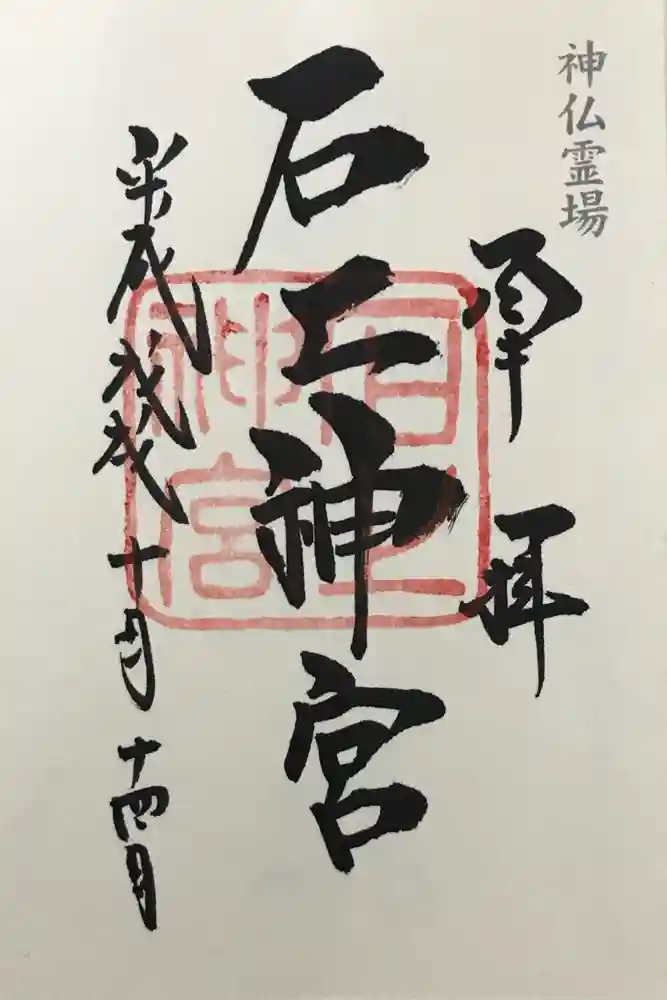 神仏霊場
奉拝
石上神宮
石上
神宮
平成戊戌十月十四日